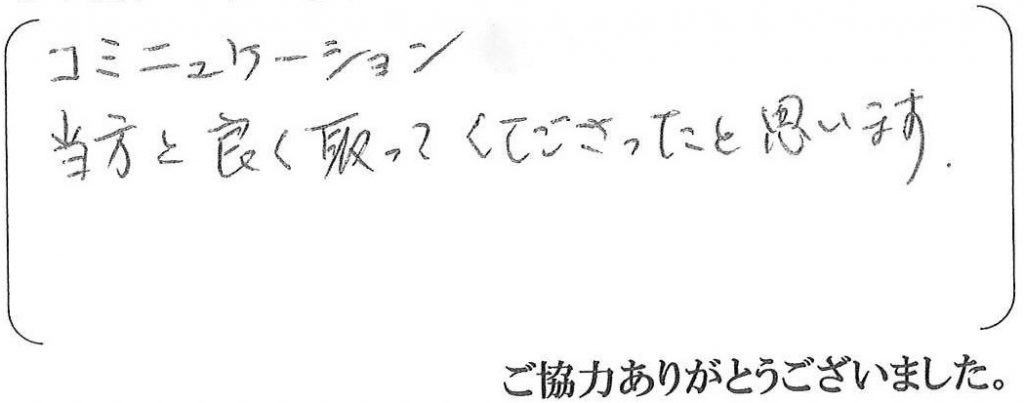 コミニュケーション
当方と良く取ってくてごさったと思います.
ご協力ありがとうございました。